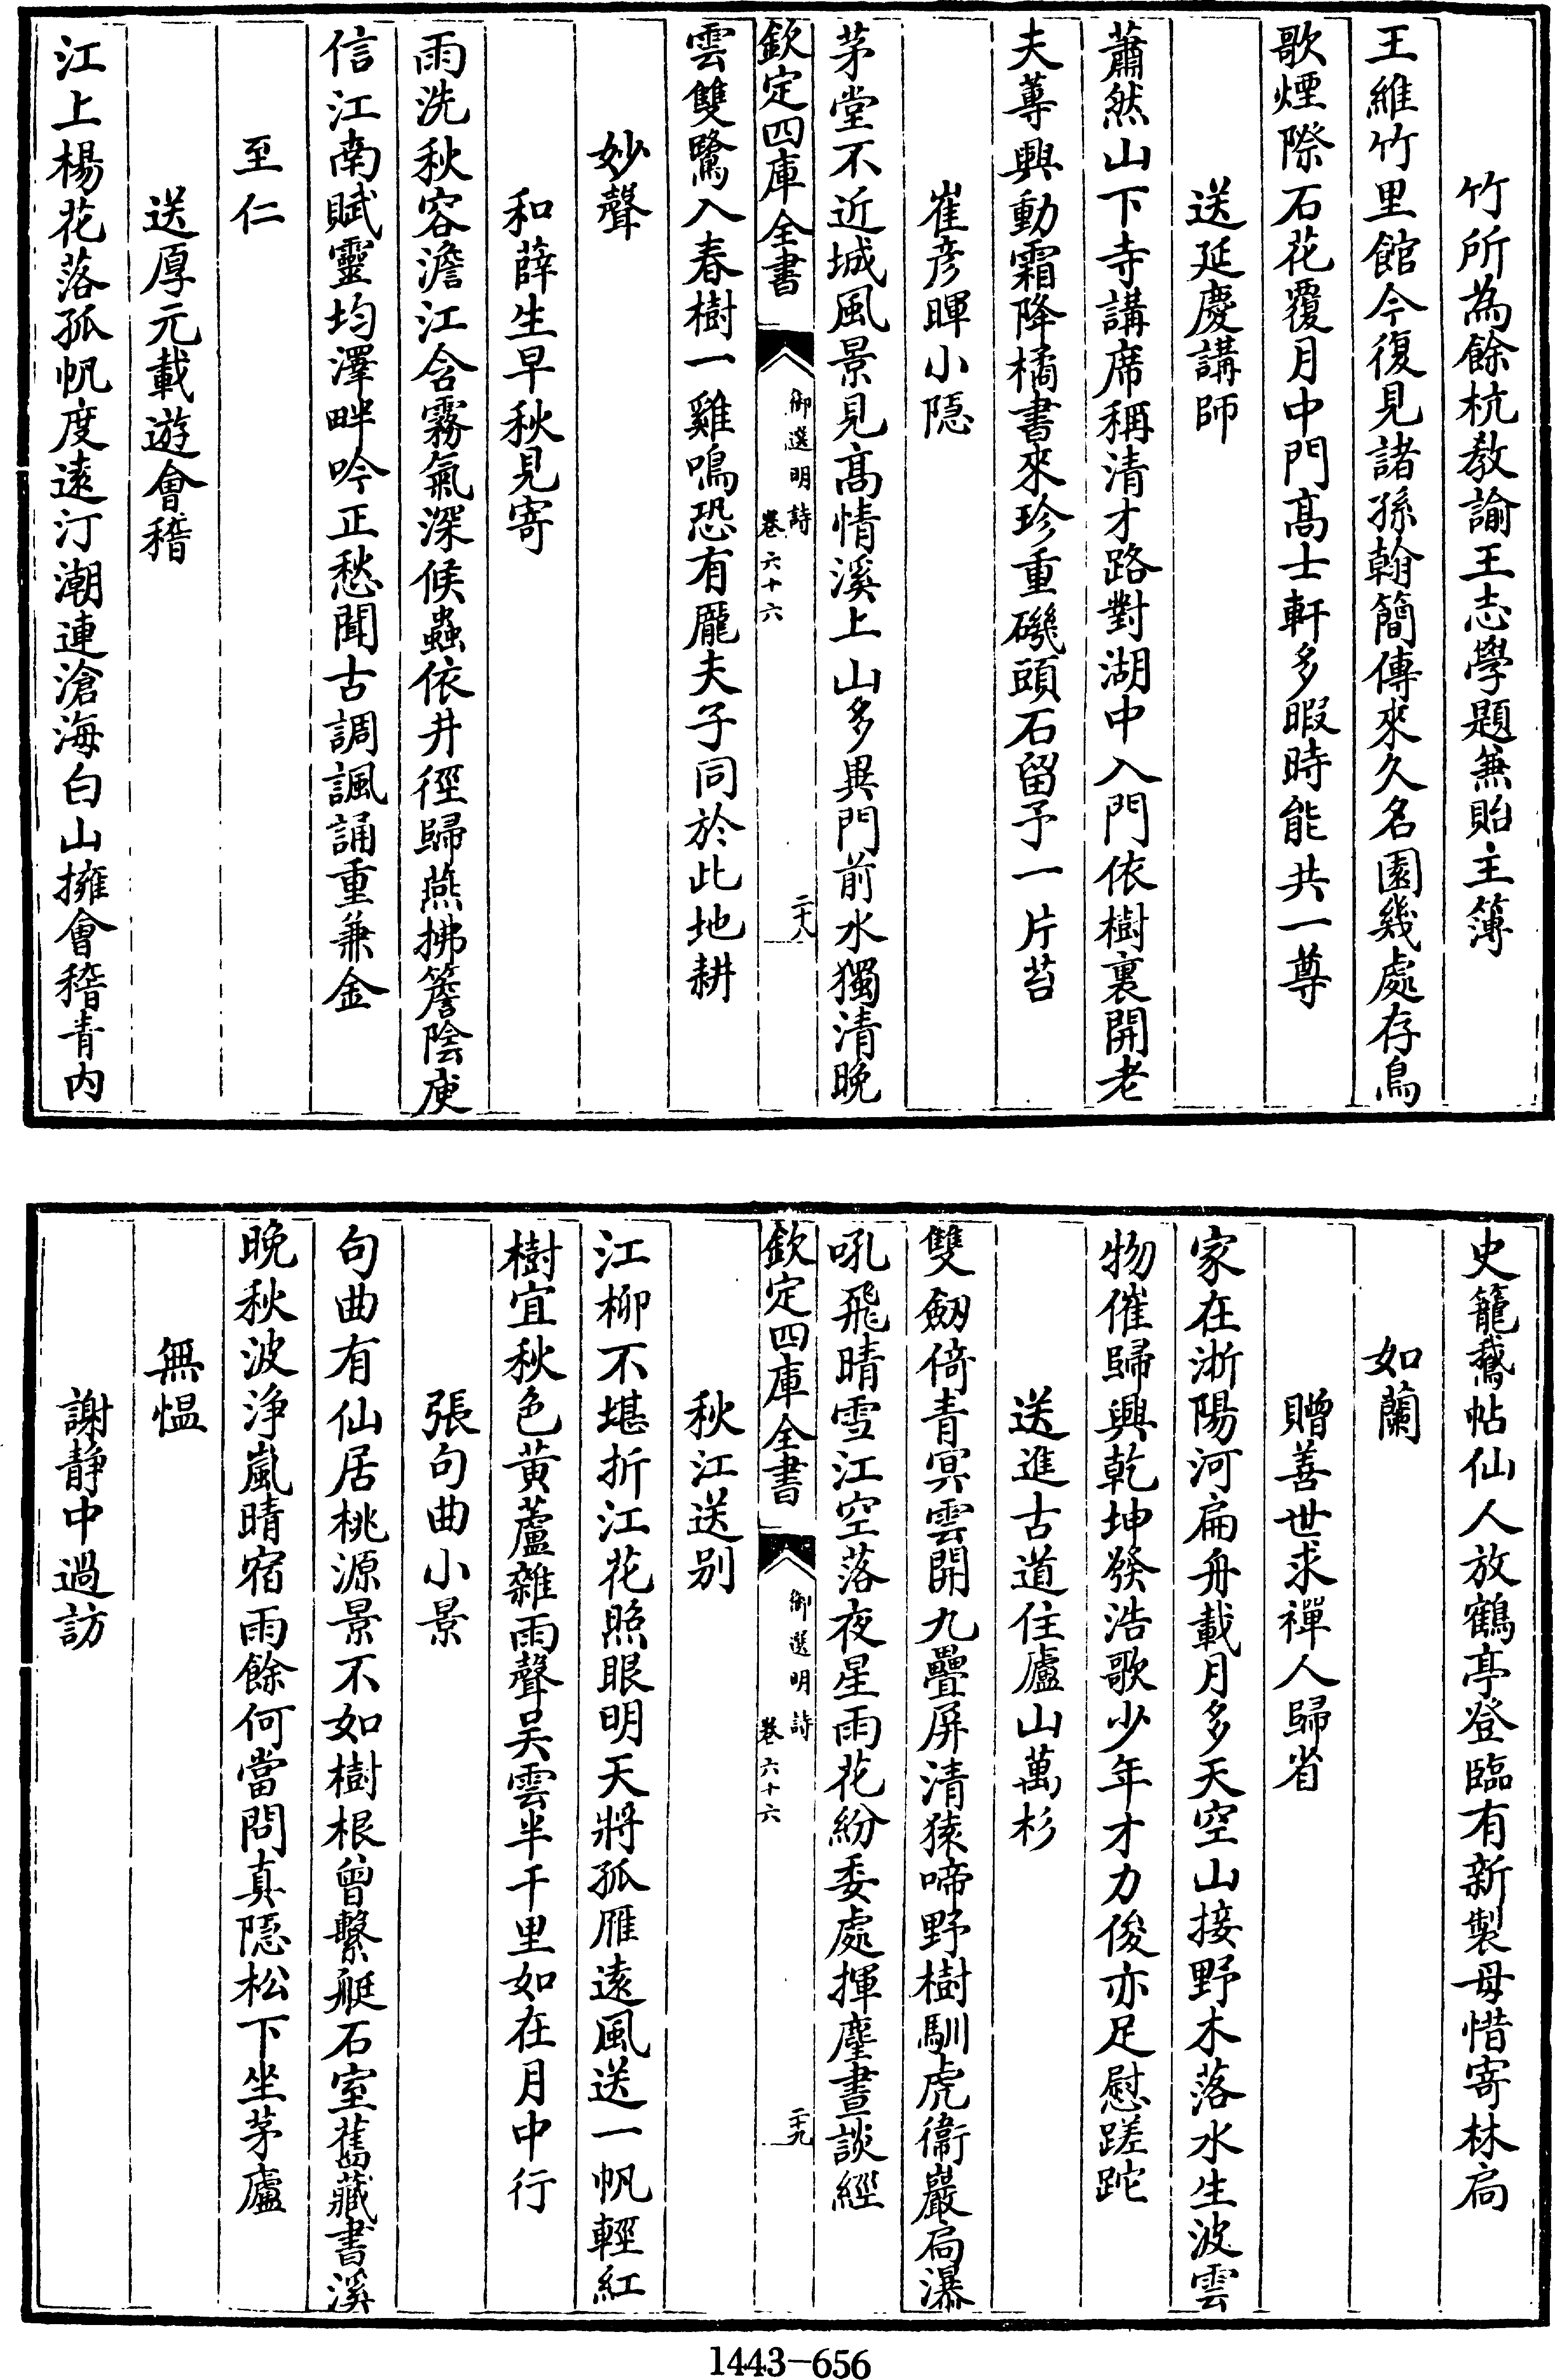 竹所為餘杭教諭王志學題兼貽主簿
王維竹里館今復見諸孫翰簡傳來久名園幾處存鳥
歌煙際石花覆月中門髙士軒多暇時能共一尊
送延慶講師
蕭然山下寺講席稱清才路對湖中入門依樹裏開老
夫蓴興動霜降橘書來珍重磯頭石留予一片苔
崔彦暉小隠
茅堂不近城風景見髙情溪上山多異門前水獨清晚
欽定四庫全書
御選明詩
卷六十六
二十八
雲雙鷺入春樹一雞鳴恐有龎夫子同於此地耕
妙聲
和薛生早秋見寄
雨洗秋容澹江含霧氣深候蟲依井徑歸燕拂簷陰庾
信江南賦靈均澤畔吟正愁聞古調諷誦重兼金
至仁
送厚元載遊會稽
江上楊花落孤帆度遠汀潮連滄海白山擁會稽青内
史籠鵞帖仙人放鶴亭登臨有新製毋惜寄林扃
如蘭
贈善世求禪人歸省
家在浙陽河扁舟載月多天空山接野木落水生波雲
物催歸興乾坤發浩歌少年才力俊亦足慰蹉跎
送進古道住廬山萬杉
雙劒倚青冥雲開九疊屏清猿啼野樹馴虎衛巖扃瀑
吼飛晴雪江空落夜星雨花紛委處揮麈晝談經
欽定四庫全書
御選明詩
卷六十六
二十九
秋江送别
江柳不堪折江花照眼明天將孤雁遠風送一帆輕紅
樹宜秋色黄蘆雜雨聲吴雲半千里如在月中行
張句曲小景
句曲有仙居桃源景不如樹根曾繫艇石室舊藏書溪
晚秋波浄嵐晴宿雨餘何當問真隠松下坐茅廬
無愠
謝静中過訪
1443-656